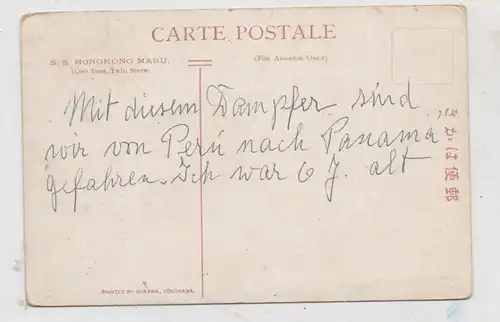 CARTE POSTALE
S. S. HONGKONG MARU.
11,000 Tons, Twin Screw.
(For Address Only)
Mit diesem Dampfer sind
wir von Perú nach Panama
gefahren. Ich war 6 J. alt
きがは便郵
PRINTED BY OGKAWA, YOKOHAMA.